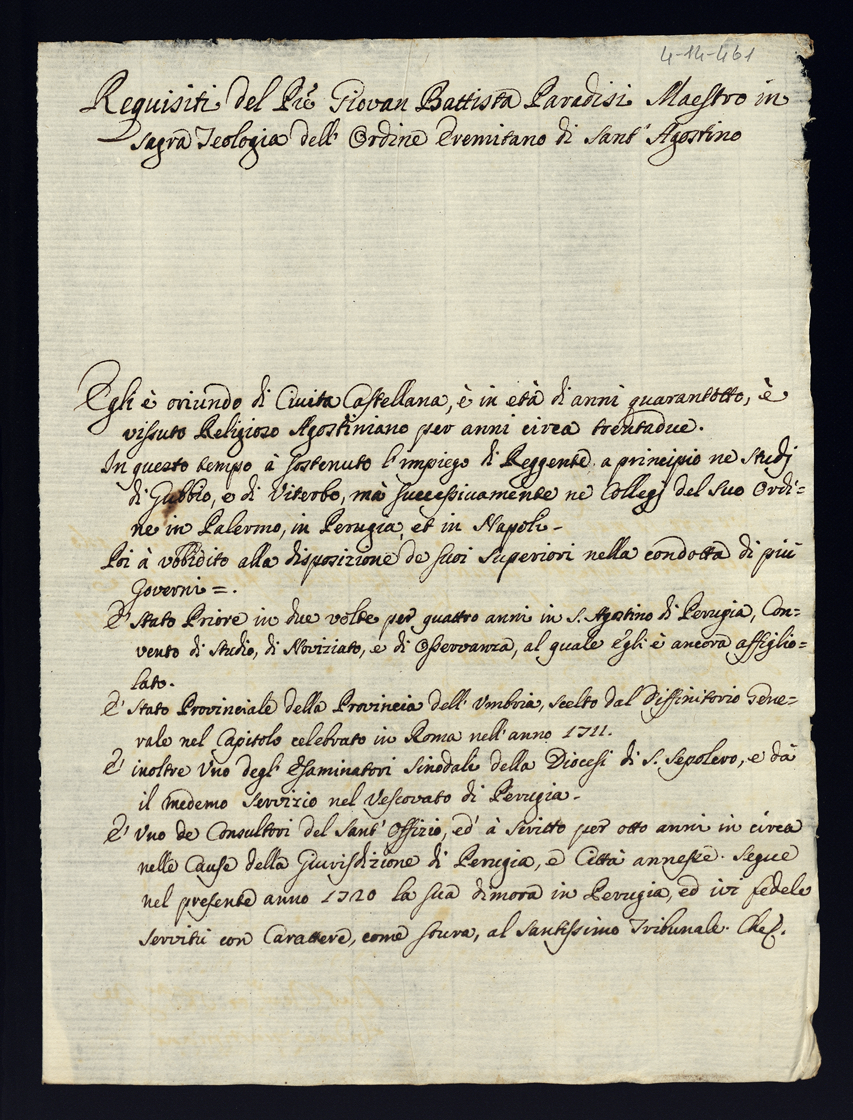 4-14-461
Requisiti del Pre Giovan Battista Paradisi Maestro in
sagra Teologia dell' Ordine Eremitano di Sant' Agostino
Egli è oriundo di Civita Castellana, è in età di anni quarantotto, è
vissuto Religioso Agostiniano per anni circa trentadue.
In questo tempo à sostenuto l'impiego di Reggente a principio ne Studj
di Gubbio, e di Viterbo, mà successivamente ne Collegj del suo Ordi=
ne in Palermo, in Perugia, et in Napoli.
Poi à vbbidito alla disposizione de suoi Superiori nella condotta di più
Governi=.
È stato Priore in due volte per quattro anni in S. Agostino di Perugia, Con=
vento di Studio, di Noviziato, e di Osservanza, al quale Egli è ancora affiglio=
lato.
È stato Provinciale della Provincia dell' Vmbria, scelto dal Diffinitorio Gene=
rale nel Capitolo celebrato in Roma nell'anno 1711.
È inoltre Vno degl' Esaminatori Sinodali della Diocesi di S. Sepolcro, e dà
il medemo Servizio nel Vescovato di Perugia.
È Vno de Consultori del Sant' Offizio, ed' à servito per otto anni in circa
nelle Cause della Giurisdizione di Perugia, e Città annesse. Segue
nel presente anno 1720 la sua dimora in Perugia, ed ivi fedele
Servitù con Carattere, come soura, al Santissimo Tribunale. Che